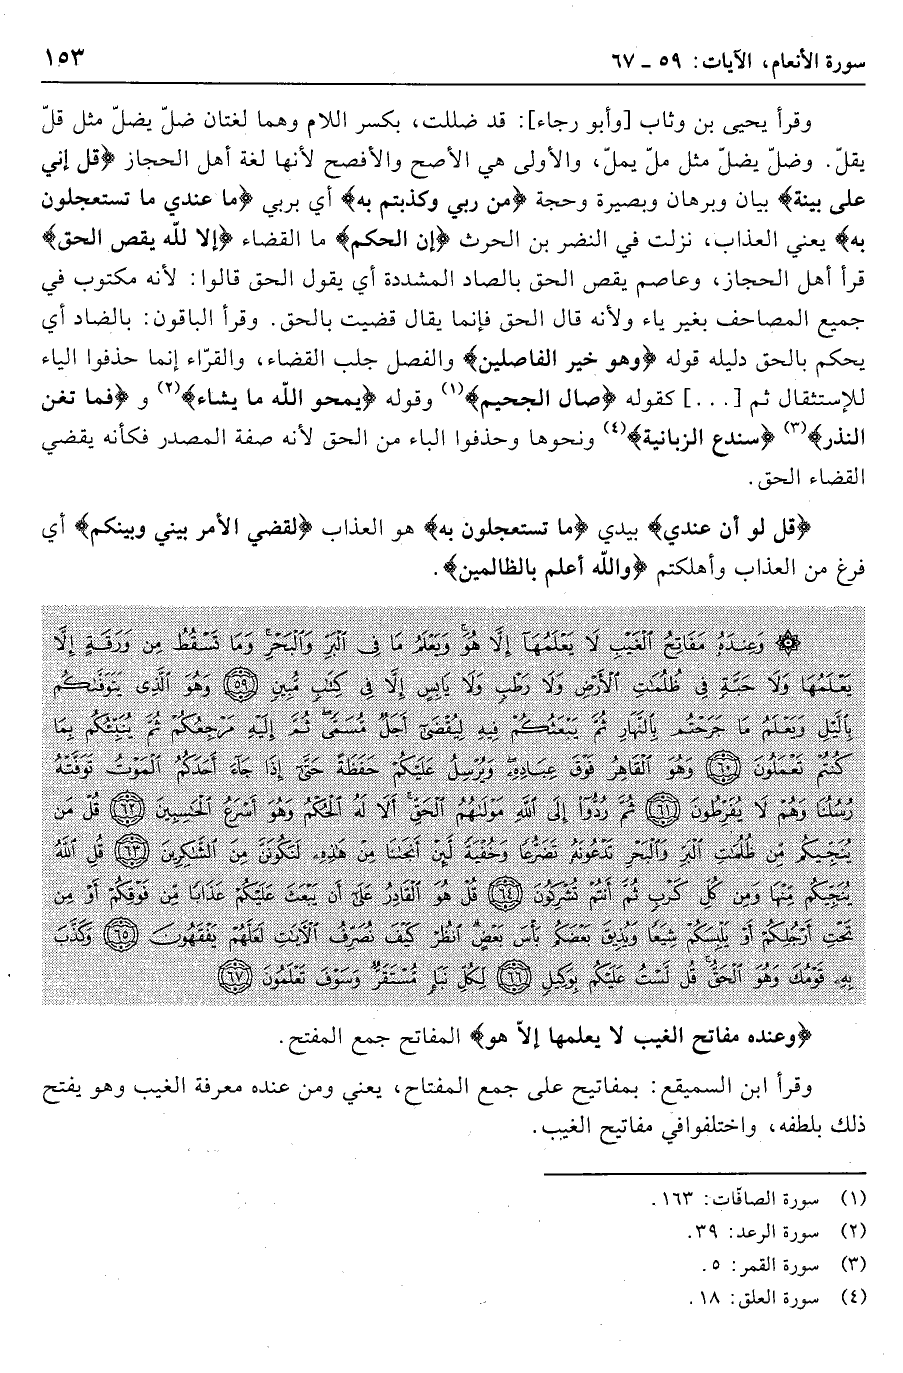 سورة الأنعام، الآيات: ٥٩ ـ ٦٧
١٥٣
وقرأ يحيى بن وثاب [وأبو رجاء]: قد ضللت، بكسر اللام وهما لغتان ضلّ يضلّ مثل قلّ
يقلّ. وضلّ يضلّ مثل ملّ يملّ، والأولى هي الأصح والأفصح لأنها لغة أهل الحجاز ﴿قل إني
على بينة﴾ بيان وبرهان وبصيرة وحجة ﴿من ربي وكذبتم به﴾ أي بربي ﴿ما عندي ما تستعجلون
به﴾ يعني العذاب، نزلت في النضر بن الحرث ﴿إن الحكم﴾ ما القضاء ﴿إلا لله يقص الحق﴾
قرأ أهل الحجاز، وعاصم يقص الحق بالصاد المشددة أي يقول الحق قالوا: لأنه مكتوب في
جميع المصاحف بغير ياء ولأنه قال الحق فإنما يقال قضيت بالحق. وقرأ الباقون: بالضاد أي
يحكم بالحق دليله قوله ﴿وهو خير الفاصلين﴾ والفصل جلب القضاء، والقرّاء إنما حذفوا الياء
للإستثقال ثم [. . .] كقوله ﴿صال الجحيم﴾(١) وقوله ﴿يمحو الله ما يشاء﴾(٢) و ﴿فما تغن
النذر﴾(٣) ﴿سندع الزبانية﴾(٤) ونحوها وحذفوا الباء من الحق لأنه صفة المصدر فكأنه يقضي
القضاء الحق.
﴿قل لو أن عندي﴾ بيدي ﴿ما تستعجلون به﴾ هو العذاب ﴿لقضي الأمر بيني وبينكم﴾ أي
فرغ من العذاب وأهلكتم ﴿والله أعلم بالظالمين﴾.
۞ وَعِندَهُۥ مَفَاتِحُ ٱلْغَيْبِ لَا يَعْلَمُهَآ إِلَّا هُوَ ۚ وَيَعْلَمُ مَا فِى ٱلْبَرِّ وَٱلْبَحْرِ ۚ وَمَا تَسْقُطُ مِن وَرَقَةٍ إِلَّا
يَعْلَمُهَا وَلَا حَبَّةٍ فِى ظُلُمَٰتِ ٱلْأَرْضِ وَلَا رَطْبٍ وَلَا يَابِسٍ إِلَّا فِى كِتَٰبٍ مُّبِينٍ ﴿٥٩﴾ وَهُوَ ٱلَّذِى يَتَوَفَّىٰكُم
بِٱلَّيْلِ وَيَعْلَمُ مَا جَرَحْتُم بِٱلنَّهَارِ ثُمَّ يَبْعَثُكُمْ فِيهِ لِيُقْضَىٰٓ أَجَلٌ مُّسَمًّى ۖ ثُمَّ إِلَيْهِ مَرْجِعُكُمْ ثُمَّ يُنَبِّئُكُم بِمَا
كُنتُمْ تَعْمَلُونَ ﴿٦٠﴾ وَهُوَ ٱلْقَاهِرُ فَوْقَ عِبَادِهِۦ ۖ وَيُرْسِلُ عَلَيْكُمْ حَفَظَةً حَتَّىٰٓ إِذَا جَآءَ أَحَدَكُمُ ٱلْمَوْتُ تَوَفَّتْهُ
رُسُلُنَا وَهُمْ لَا يُفَرِّطُونَ ﴿٦١﴾ ثُمَّ رُدُّوٓا۟ إِلَى ٱللَّهِ مَوْلَىٰهُمُ ٱلْحَقِّ ۚ أَلَا لَهُ ٱلْحُكْمُ وَهُوَ أَسْرَعُ ٱلْحَٰسِبِينَ ﴿٦٢﴾ قُلْ مَن
يُنَجِّيكُم مِّن ظُلُمَٰتِ ٱلْبَرِّ وَٱلْبَحْرِ تَدْعُونَهُۥ تَضَرُّعًا وَخُفْيَةً لَّئِنْ أَنجَىٰنَا مِنْ هَٰذِهِۦ لَنَكُونَنَّ مِنَ ٱلشَّٰكِرِينَ ﴿٦٣﴾ قُلِ ٱللَّهُ
يُنَجِّيكُم مِّنْهَا وَمِن كُلِّ كَرْبٍ ثُمَّ أَنتُمْ تُشْرِكُونَ ﴿٦٤﴾ قُلْ هُوَ ٱلْقَادِرُ عَلَىٰٓ أَن يَبْعَثَ عَلَيْكُمْ عَذَابًا مِّن فَوْقِكُمْ أَوْ مِن
تَحْتِ أَرْجُلِكُمْ أَوْ يَلْبِسَكُمْ شِيَعًا وَيُذِيقَ بَعْضَكُم بَأْسَ بَعْضٍ ۗ ٱنظُرْ كَيْفَ نُصَرِّفُ ٱلْءَايَٰتِ لَعَلَّهُمْ يَفْقَهُونَ ﴿٦٥﴾ وَكَذَّبَ
بِهِۦ قَوْمُكَ وَهُوَ ٱلْحَقُّ ۚ قُل لَّسْتُ عَلَيْكُم بِوَكِيلٍ ﴿٦٦﴾ لِّكُلِّ نَبَإٍ مُّسْتَقَرٌّ ۚ وَسَوْفَ تَعْلَمُونَ ﴿٦٧﴾
﴿وعنده مفاتح الغيب لا يعلمها إلاّ هو﴾ المفاتح جمع المفتح.
وقرأ ابن السميقع: بمفاتيح على جمع المفتاح، يعني ومن عنده معرفة الغيب وهو يفتح
ذلك بلطفه، واختلفوافي مفاتيح الغيب.
(١) سورة الصافّات: ١٦٣.
(٢) سورة الرعد: ٣٩.
(٣) سورة القمر: ٥.
(٤) سورة العلق: ١٨.